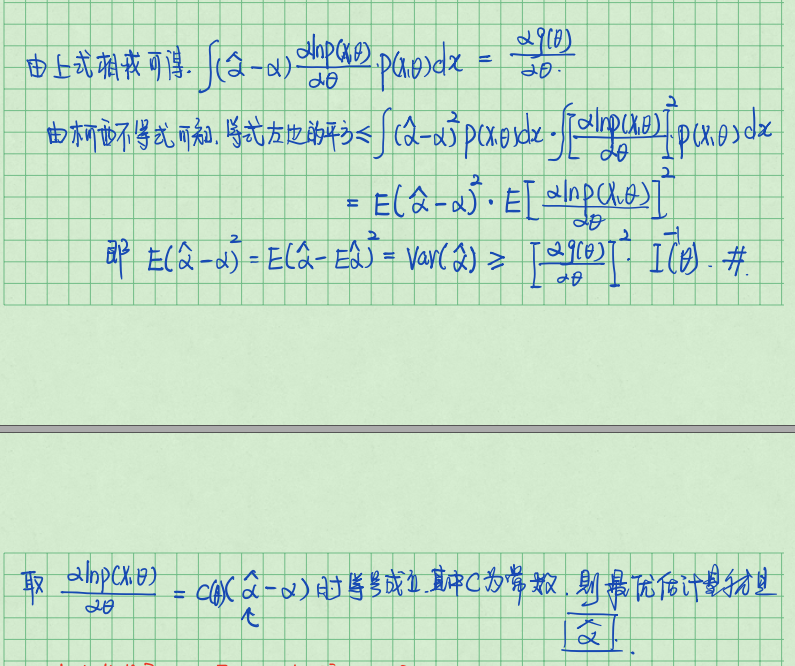 由上式相减可得. ∫(α̂-α) ∂lnp(x,θ)/∂θ · p(x,θ)dx = ∂g(θ)/∂θ.
由柯西不等式可知, 等式左边的平方 ≤ ∫(α̂-α)² p(x,θ)dx · ∫[∂lnp(x,θ)/∂θ]² · p(x,θ)dx
= E(α̂-α)² · E[∂lnp(x,θ)/∂θ]²
即 E(α̂-α)² = E(α̂-Eα̂)² = Var(α̂) ≥ [∂g(θ)/∂θ]² · I⁻¹(θ). #.
取 ∂lnp(x,θ)/∂θ = c(θ)(α̂-α) 时等号成立. 其中C为常数. 则最优估计量
α̂.